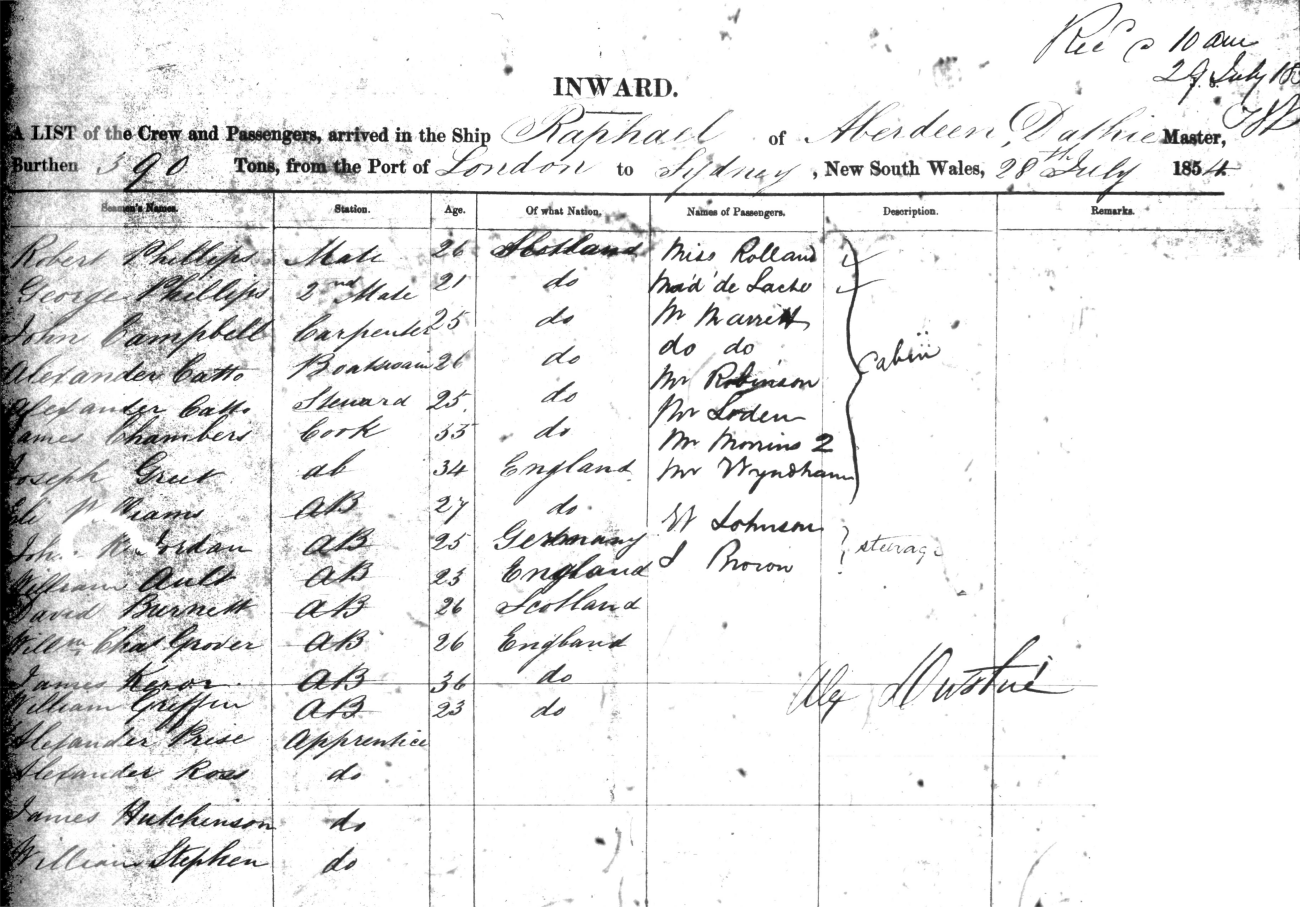 Rec'd 10 am
29 July 185
INWARD.
A LIST of the Crew and Passengers, arrived in the Ship Raphael of Aberdeen, Duthie Master,
Burthen 390 Tons, from the Port of London to Sydney, New South Wales, 28th July 1854.
Seamen's Names. Station. Age. Of what Nation. Names of Passengers. Description. Remarks.
Robert Phillips Mate 26 Scotland Miss Rolland
George Phillips 2nd Mate 21 do
John Campbell Carpenter 25 do Mr
Alexander Catto Boatswain 26 do do do Cabin
Alexander Catto Steward 25 do Mr Robinson
James Chambers Cook 35 do Mr Loden
Joseph Greet ab 34 England Mr Morrins 2
Mr Wyndham
Eli Williams AB 27 do W Johnson
John Jordan AB 25 Germany steerage
William Ault AB 23 England J Brown
David Burnett AB 26 Scotland
Willm Chas Grover AB 26 England
James AB 36 do
Alex
William Griffin AB 23 do
Alexander Prise Apprentice
Alexander Ross do
James Hutchinson do
William Stephen do